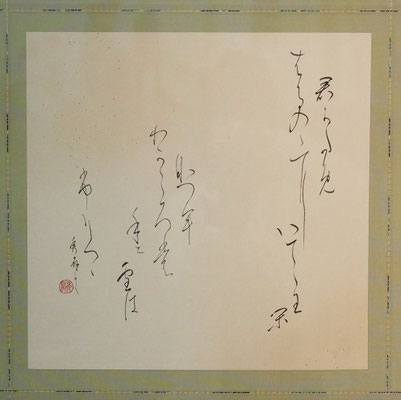 君かため
はるのゝにいてゝ王
可
なつむ
わかころも
手に
雪は
ふりつゝ